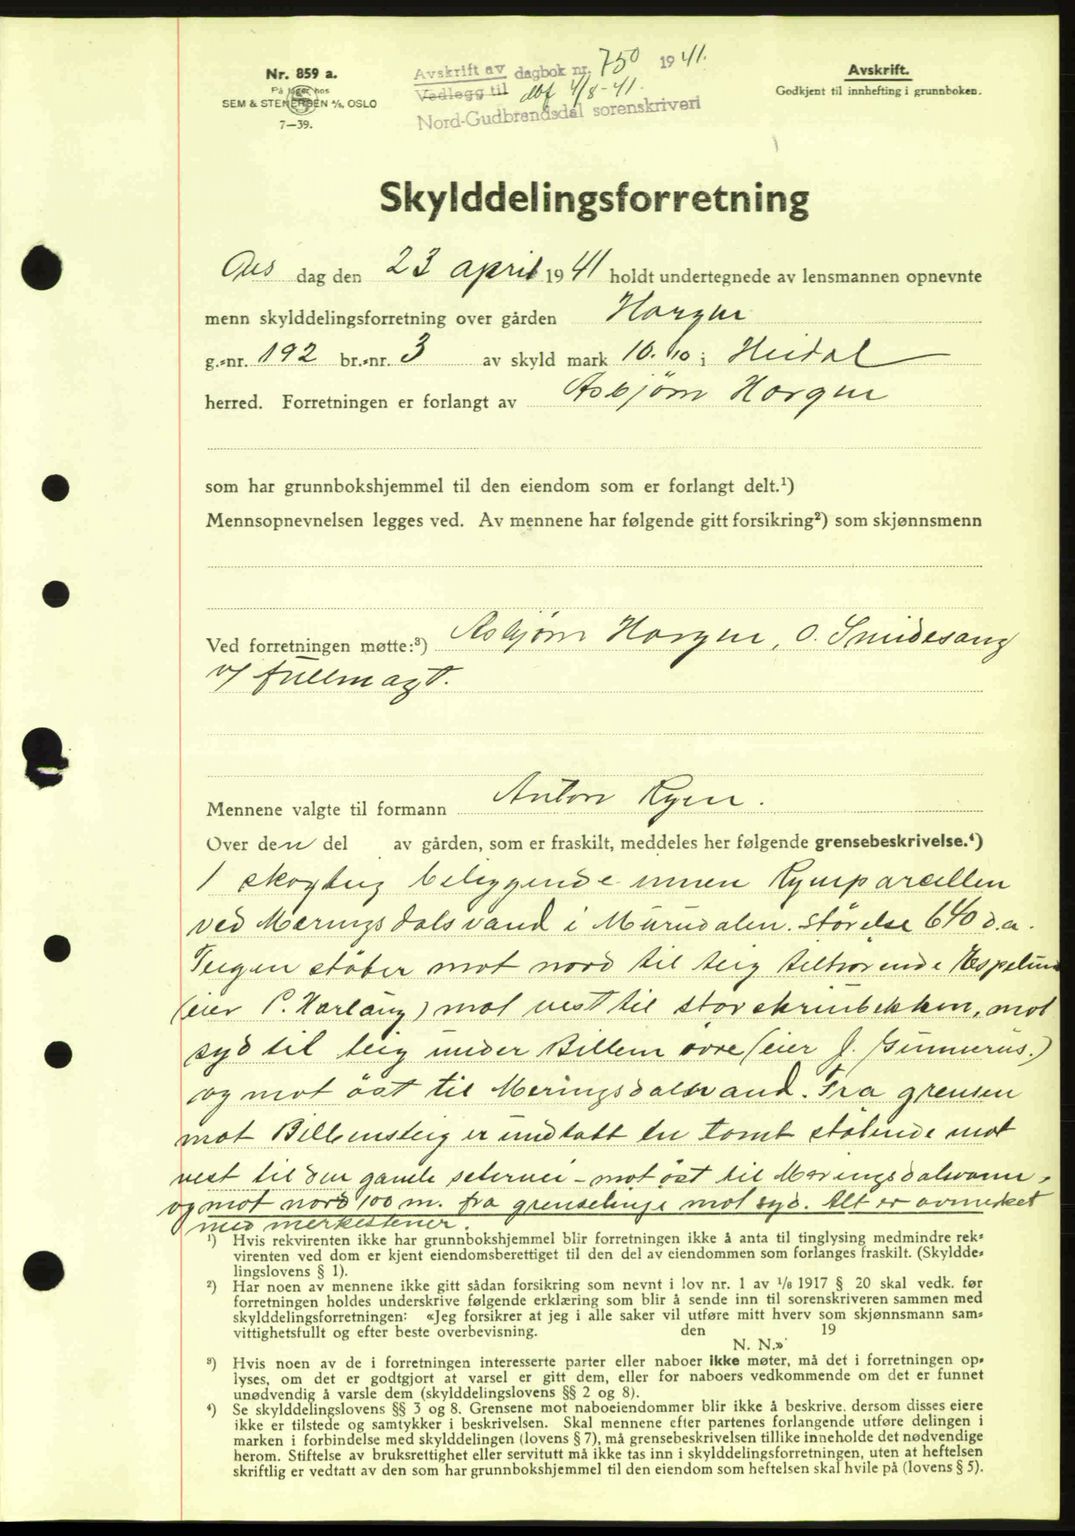 Nr. 859 a.
På lager hos
SEM & STENERSEN A/S, OSLO
7—39.
Avskrift av dagbok nr. 750 1941.
Vedlegg til dbf 4/8-41.
Nord-Gudbrandsdal sorenskriveri
Avskrift.
Godkjent til innhefting i grunnboken.
Skylddelingsforretning
Ons dag den 23 april 1941 holdt undertegnede av lensmannen opnevnte
menn skylddelingsforretning over gården Horgen
g.-nr. 192 br.-nr. 3 av skyld mark 10.10 i Heidal
herred. Forretningen er forlangt av Asbjørn Horgen
som har grunnbokshjemmel til den eiendom som er forlangt delt.¹)
Mennsopnevnelsen legges ved. Av mennene har følgende gitt forsikring²) som skjønnsmenn
Ved forretningen møtte:³) Asbjørn Horgen, O. Smidesang
v/ fullmagt.
Mennene valgte til formann Anton Ryen.
Over den del av gården, som er fraskilt, meddeles her følgende grensebeskrivelse.⁴)
1 skogteig beliggende innen Rymparcellen
ved Meringsdalsvand i Murudalen. Størelse 640 d.a.
Teigen støter mot nord til teig tilhørende Espelund
(eier P. Harlaug) mot vest til storskrinbekken, mot
syd til teig under Billem øvre (eier J. Gunnerus.)
og mot øst til Meringsdalsvand. Fra grensen
mot Billemsteig er undtatt en tomt støtende mot
vest til den gamle setervei - mot øst til Meringsdalsvann,
og mot nord 100 m. fra grenselinje mot syd. Alt er avmerket
med merkestener.
¹) Hvis rekvirenten ikke har grunnbokshjemmel blir forretningen ikke å anta til tinglysing medmindre rek-
virenten ved dom er kjent eiendomsberettiget til den del av eiendommen som forlanges fraskilt. (Skyldde-
lingslovens § 1).
²) Har noen av mennene ikke gitt sådan forsikring som nevnt i lov nr. 1 av 1/6 1917 § 20 skal vedk. før
forretningen holdes underskrive følgende erklæring som blir å sende inn til sorenskriveren sammen med
skylddelingsforretningen: «Jeg forsikrer at jeg i alle saker vil utføre mitt hverv som skjønnsmann sam-
vittighetsfullt og efter beste overbevisning. den 19
N. N.»
³) Hvis noen av de i forretningen interesserte parter eller naboer ikke møter, må det i forretningen op-
lyses, om det er godtgjort at varsel er gitt dem, eller for naboers vedkommende om det er funnet
unødvendig å varsle dem (skylddelingslovens §§ 2 og 8).
⁴) Se skylddelingslovens §§ 3 og 8. Grensene mot naboeiendommer blir ikke å beskrive, dersom disses eiere
ikke er tilstede og samtykker i beskrivelsen. Skal mennene efter partenes forlangende utføre delingen i
marken i forbindelse med skylddelingen (lovens § 7), må grensebeskrivelsen tillike inneholde det nødvendige
herom. Stiftelse av bruksrettighet eller servitutt må ikke tas inn i skylddelingsforretningen, uten at heftelsen
skriftlig er vedtatt av den som har grunnbokshjemmel til den eiendom som heftelsen skal hvile på (lovens § 5).